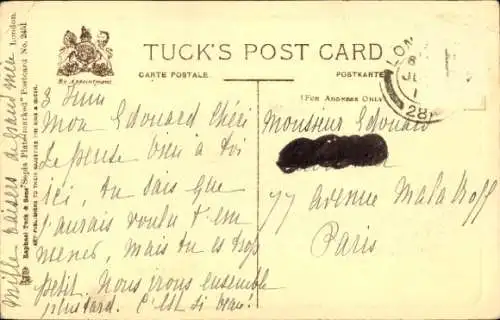 TUCK'S POST CARD
By Appointment.
CARTE POSTALE
POSTKARTE
(For Address Only)
LON
28
3 Juin
Mon Edouard Chéri
Je pense bien à toi
ici, tu sais que
j'aurais voulu t'em
mener, mais tu es trop
petit. Nous irons ensemble
plus tard. C'est si beau!
Mille baisers de grand mère
Raphael Tuck & Sons' "Sepia Platemarked" Postcard No. 2451 London.
ART PUBLISHERS TO THEIR MAJESTIES THE KING & QUEEN.
Monsieur Edouard
77 Avenue Malakoff
Paris